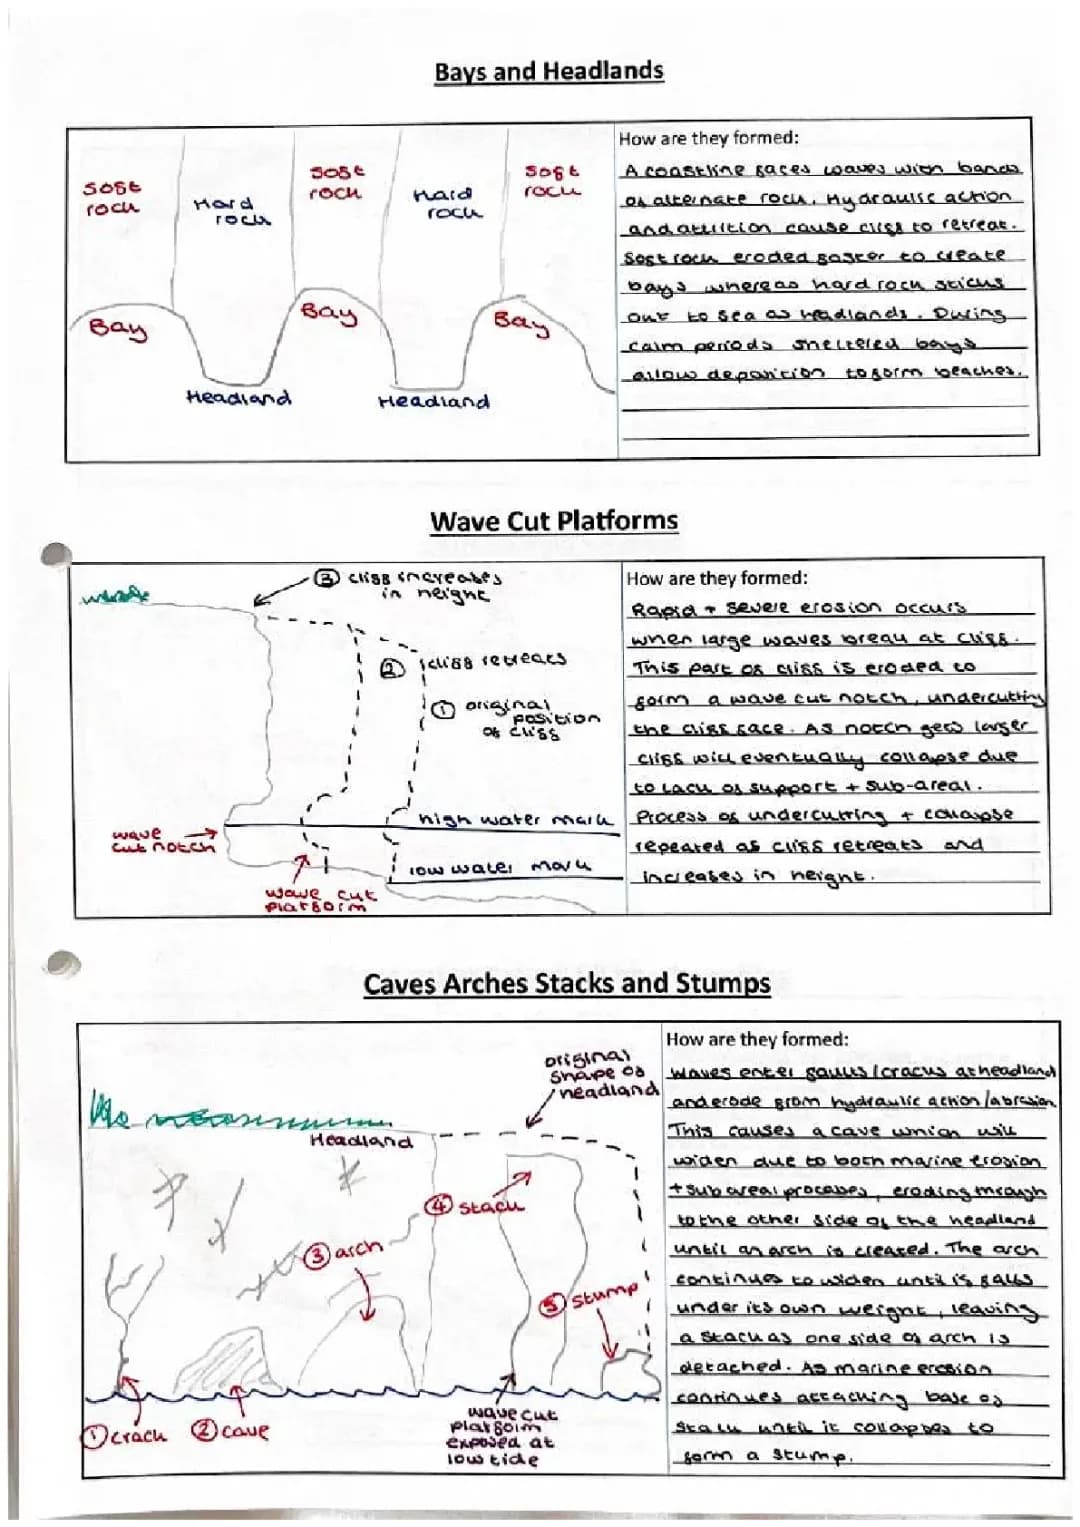 Bays and Headlands
soft rock
Hard rock
soft rock
Hard rock
soft rock
Bay
Bay
Bay
Headland
Headland
How are they formed:
A coastline faces waves with bands
of alternate rock. Hydraulic action
and attrition cause cliff to retreat.
Soft rock eroded faster to create
bays whereas hard rock sticks
out to sea as headlands. During
calm periods sheltered bays
allow deposition to form beaches.
Wave Cut Platforms
③ cliff increases
in height
② cliff retreats
① original
position
of cliff
high water mark
wave
cut notch
low water mark
wave cut
platform
How are they formed:
Rapid + severe erosion occurs
when large waves break at cliff.
This part of cliff is eroded to
form a wave cut notch, undercutting
the cliff face. As notch gets larger
cliff will eventually collapse due
to lack of support + sub-areal.
Process of undercutting + collapse
repeated as cliff retreats and
increases in height.
Caves Arches Stacks and Stumps
original
shape of
headland
Headland
④ stack
③ arch
⑤ stump
① crack
② cave
wave cut
platform
exposed at
low tide
How are they formed:
Waves enter faults/cracks at headland
and erode from hydraulic action/abrasion
This causes a cave which will
widen due to both marine erosion
+ sub areal processes, eroding through
to the other side of the headland
until an arch is created. The arch
continues to widen until is falls
under its own weight, leaving
a stack as one side of arch is
detached. As marine erosion
continues attacking base of
stack until it collapses to
form a stump.